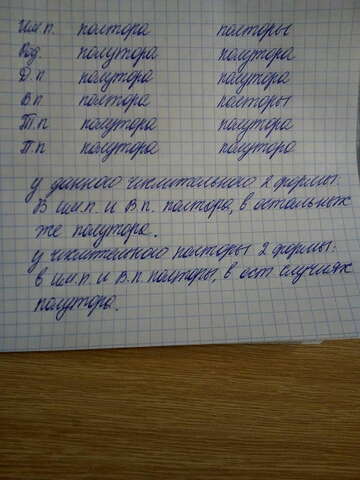 Им.п. полтора полторы
Род. полутора полутора
Д.п полутора полутора
В.п полтора полторы
Т.п полутора полутора
П.п полутора полутора
у данного числительного 2 формы.
В им.п. и В.п. полтора, в остальных
же полутора.
у числительного полторы 2 формы:
в им.п и В.п полторы, в ост случаях
полутора.